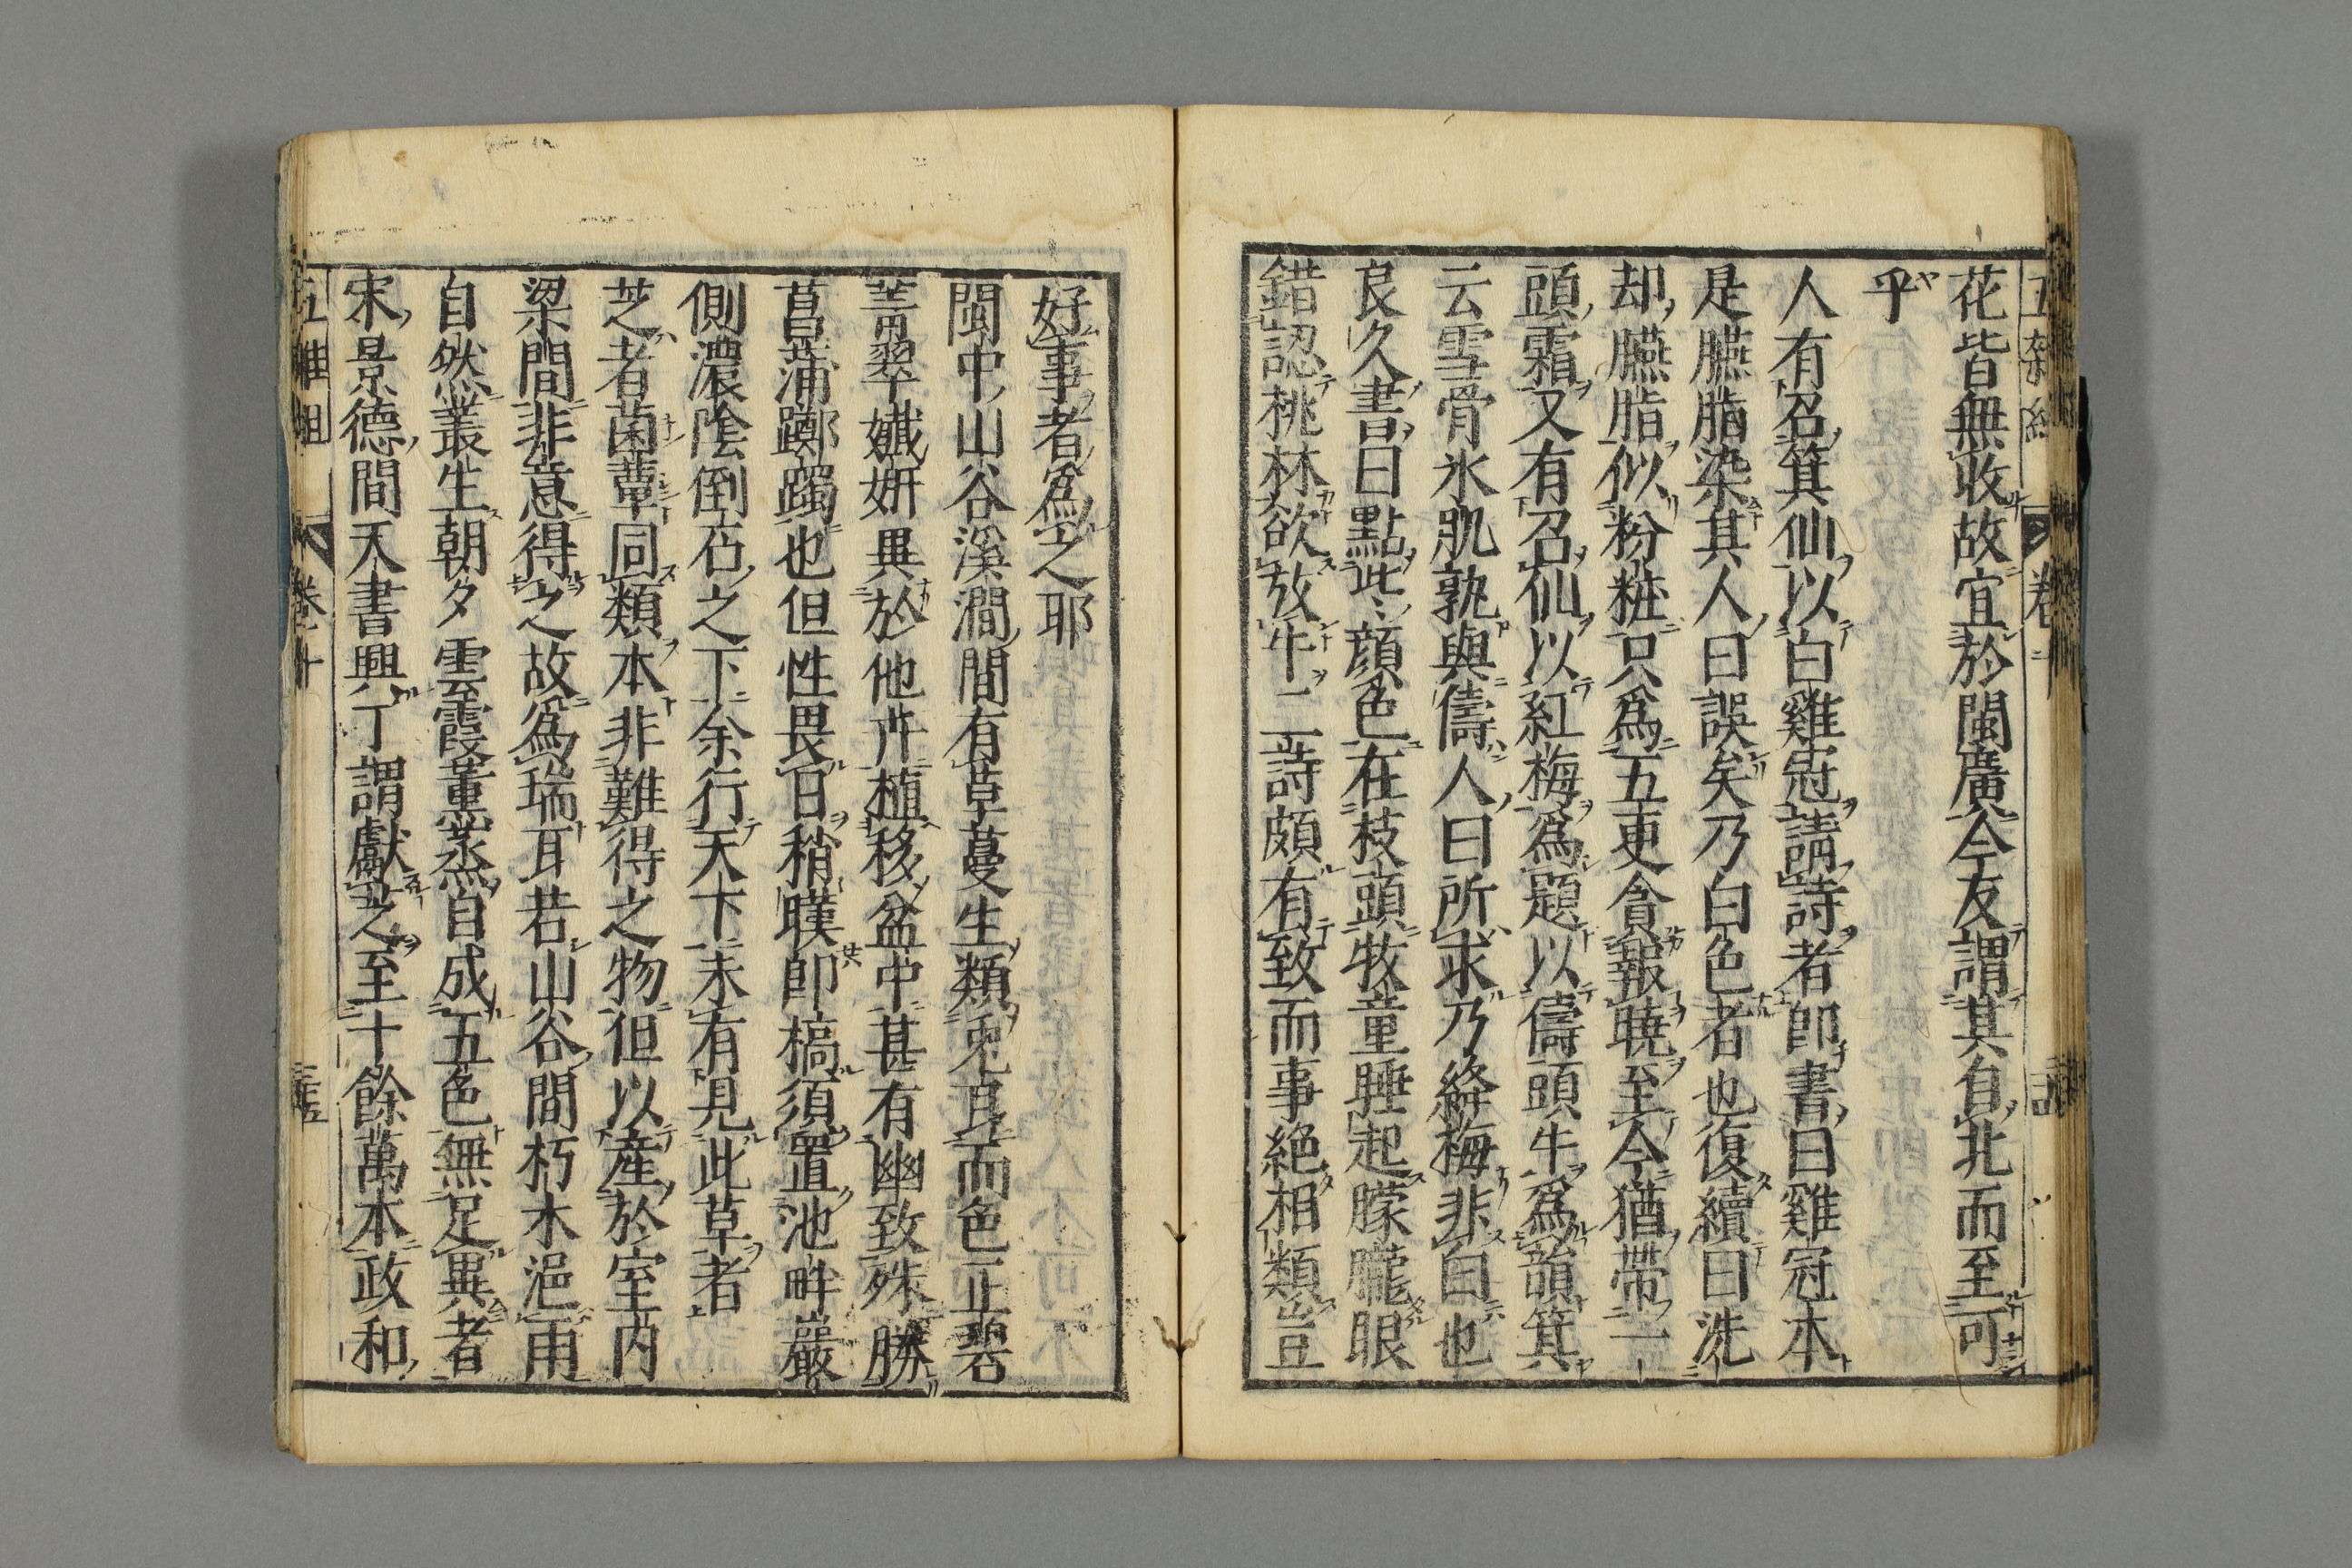 花皆無收故宜於閩廣今友謂其自北而至可
乎
人有召箕仙以白雞冠請詩者卽書曰雞冠本
是臙脂染其人曰誤矣乃白色者也復續曰洗
却臙脂似粉粧只爲五更貪報曉至今猶帶一
頭霜又有召仙以紅梅爲題以儔頭牛爲韻箕
云雪骨氷肌孰與儔人曰所求乃絳梅非白也
良久書曰點些顔色在枝頭牧童睡起朦朧眼
錯認桃林欲放牛二詩頗有致而事絶相類豈
好事者爲之耶
閩中山谷溪澗間有草蔓生類兎耳而色正碧
菁翠孅姸異於他卉植移盆中甚有幽致殊勝
菖蒲躑躅也但性畏日稍暵卽槁須置池畔巖
側濃陰倒石之下余行天下未有見此草者
芝者菌蕈同類本非難得之物但以産於室内
梁間非意得之故爲瑞耳若山谷間朽木浥雨
自然叢生朝夕雲霞薫蒸自成五色無足異者
宋景德間天書興丁謂獻芝至十餘萬本政和
五雜組
卷十